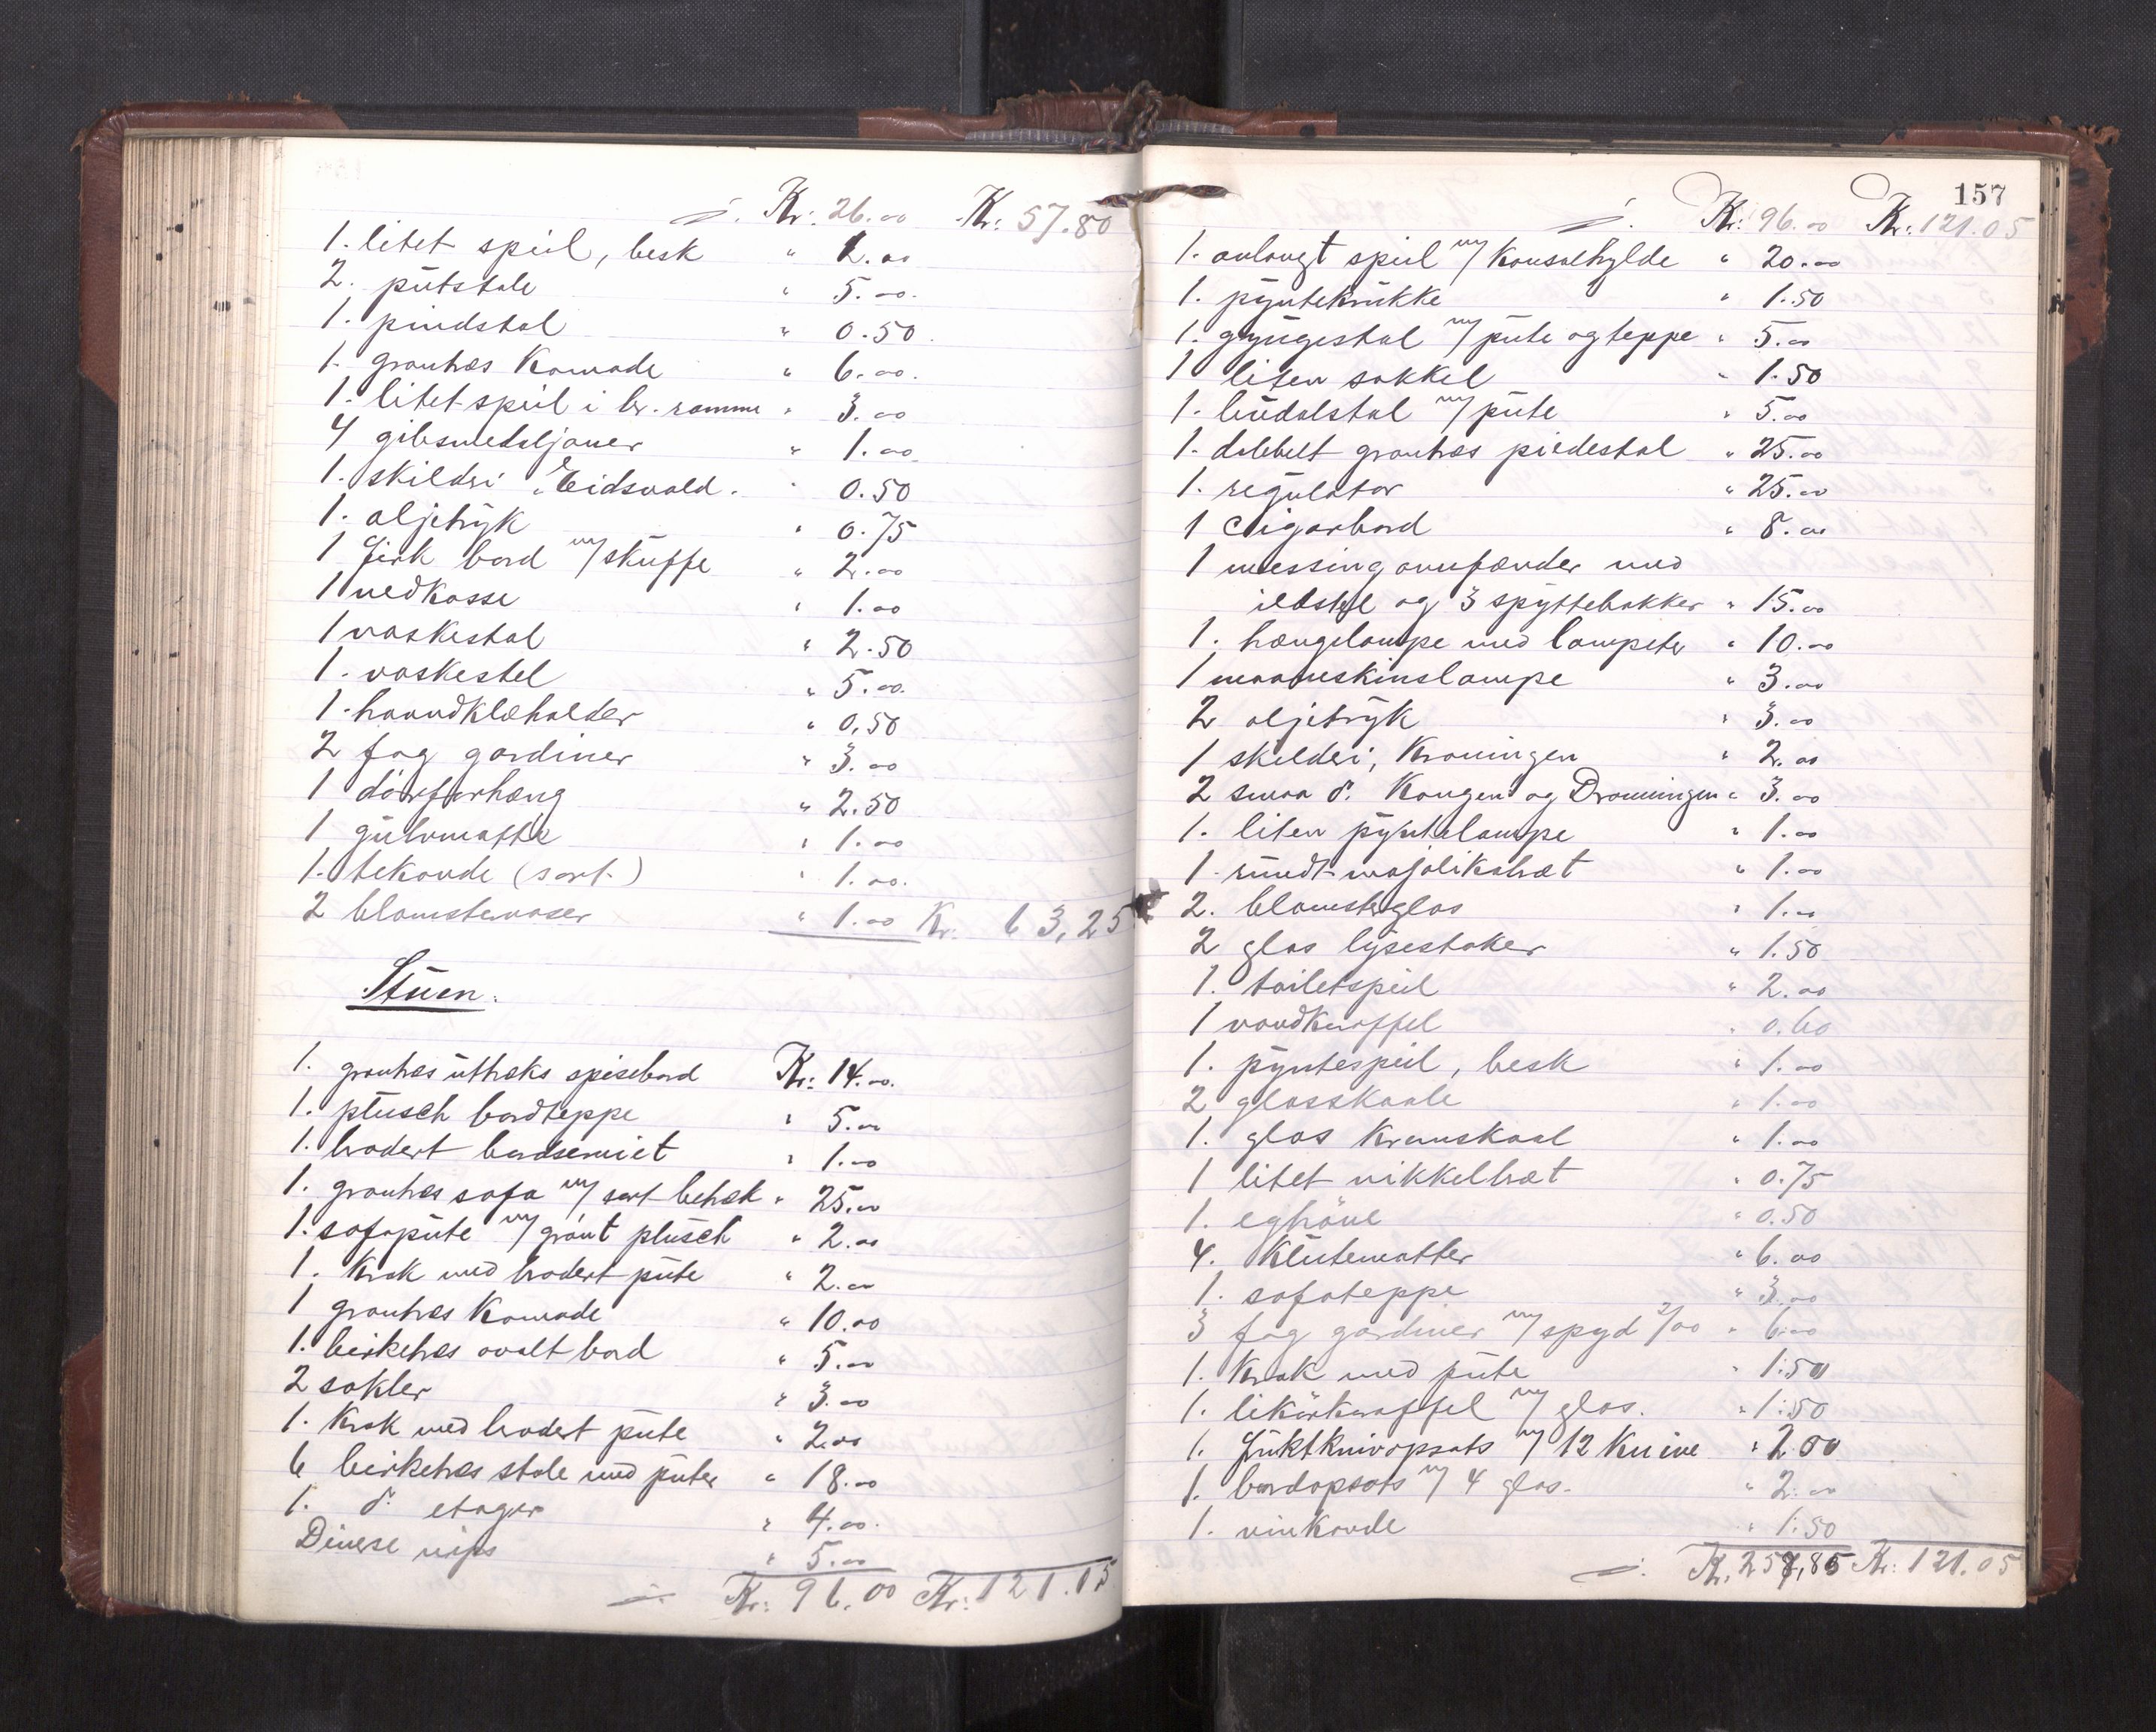 ÷. Kr: 26.00 Kr: 57.80
1. litet speil, besk " 1.00
2. putstole " 5.00.
1. pindstol " 0.50.
1. grantræs Komode " 6.00.
1. litet speil i br. ramme " 3.00
4 gibsmedaljoner " 1.00
1. skilderi "Eidsvold. " 0.50
1. oljetryk " 0.75
1 firk bord m/ skuffe " 2.00
1 vedkasse " 1.00
1 vaskestol " 2.50
1. vaskestel " 5.00.
1. haandklæholder " 0,50
2 fag gardiner " 3.00
1 dørforhæng " 2.50
1 gulvmatte " 1.00
1. tekande (sort.) " 1.00.
2 blomstervaser " 1.00 Kr. 63,25
Stuen.
1. grantræs uttræks spisebord Kr: 14.00.
1. plusch bordteppe " 5.00
1. brodert bordserviet " 1.00
1. grantræs sofa m/ sort betræk " 25.00
1. sofapute m/ grønt plusch " 2.00
1. Krak med brodert pute " 2.00
1 grantræs Komode " 10.00
1. birketræs ovalt bord " 5.00
2 sokler " 3.00
1. Krak med brodert pute " 2.00
6 birketræs stole med puter " 18.00
1. do etager " 4.00.
Diverse nips " 5.00
÷ Kr: 96.00 Kr: 121.05
157
÷. Kr: 96.00 Kr: 121.05
1. avlangt speil m/ Konsolhylde " 20.00
1. pyntekrukke " 1.50
1. gyngestol m/ pute og teppe " 5.00
1 liten sokkel " 1.50
1. lindalstol m/ pute " 5.00
1. dobbelt grantræs piedestal " 25.00
1. regulator " 25.00
1 cigarbord " 8.00
1 messing ovnfænder med
ildstel og 3 spyttebakker " 15.00
1. hængelampe med lampeter " 10.00
1 maaneskinslampe " 3.00
2 oljetryk " 3.00
1 skilderi, Kroningen " 2.00
2 smaa do. Kongen og Dronningen " 3.00
1. liten pyntelampe " 1.00
1. rundt majolikabræt " 1.00
2. blomsterglas " 1.00
2 glas lysestaker " 1.50
1. toiletspeil " 2.00
1 vandkaraffel " 0.60
1. pyntespeil, besk " 1.00
2 glasskaale " 1.00
1. glas Kremskaal " 1.00
1 litet nikkelbræt " 0.75
1. eghøne " 0.50
4. Klutematter " 6.00
1. sofateppe " 3.00
3 fag gardiner m/ spyd 2/00 " 6.00
1. Krak med pute " 1.50
1. likørkaraffel m/ glas. " 1.50
1. fruktknivopsats m/ 12 Knive " 2.00
1. bordopsats m/ 4 glas. " 2.00
1. vinkande " 1.50
÷. Kr. 257,85 Kr: 121.05